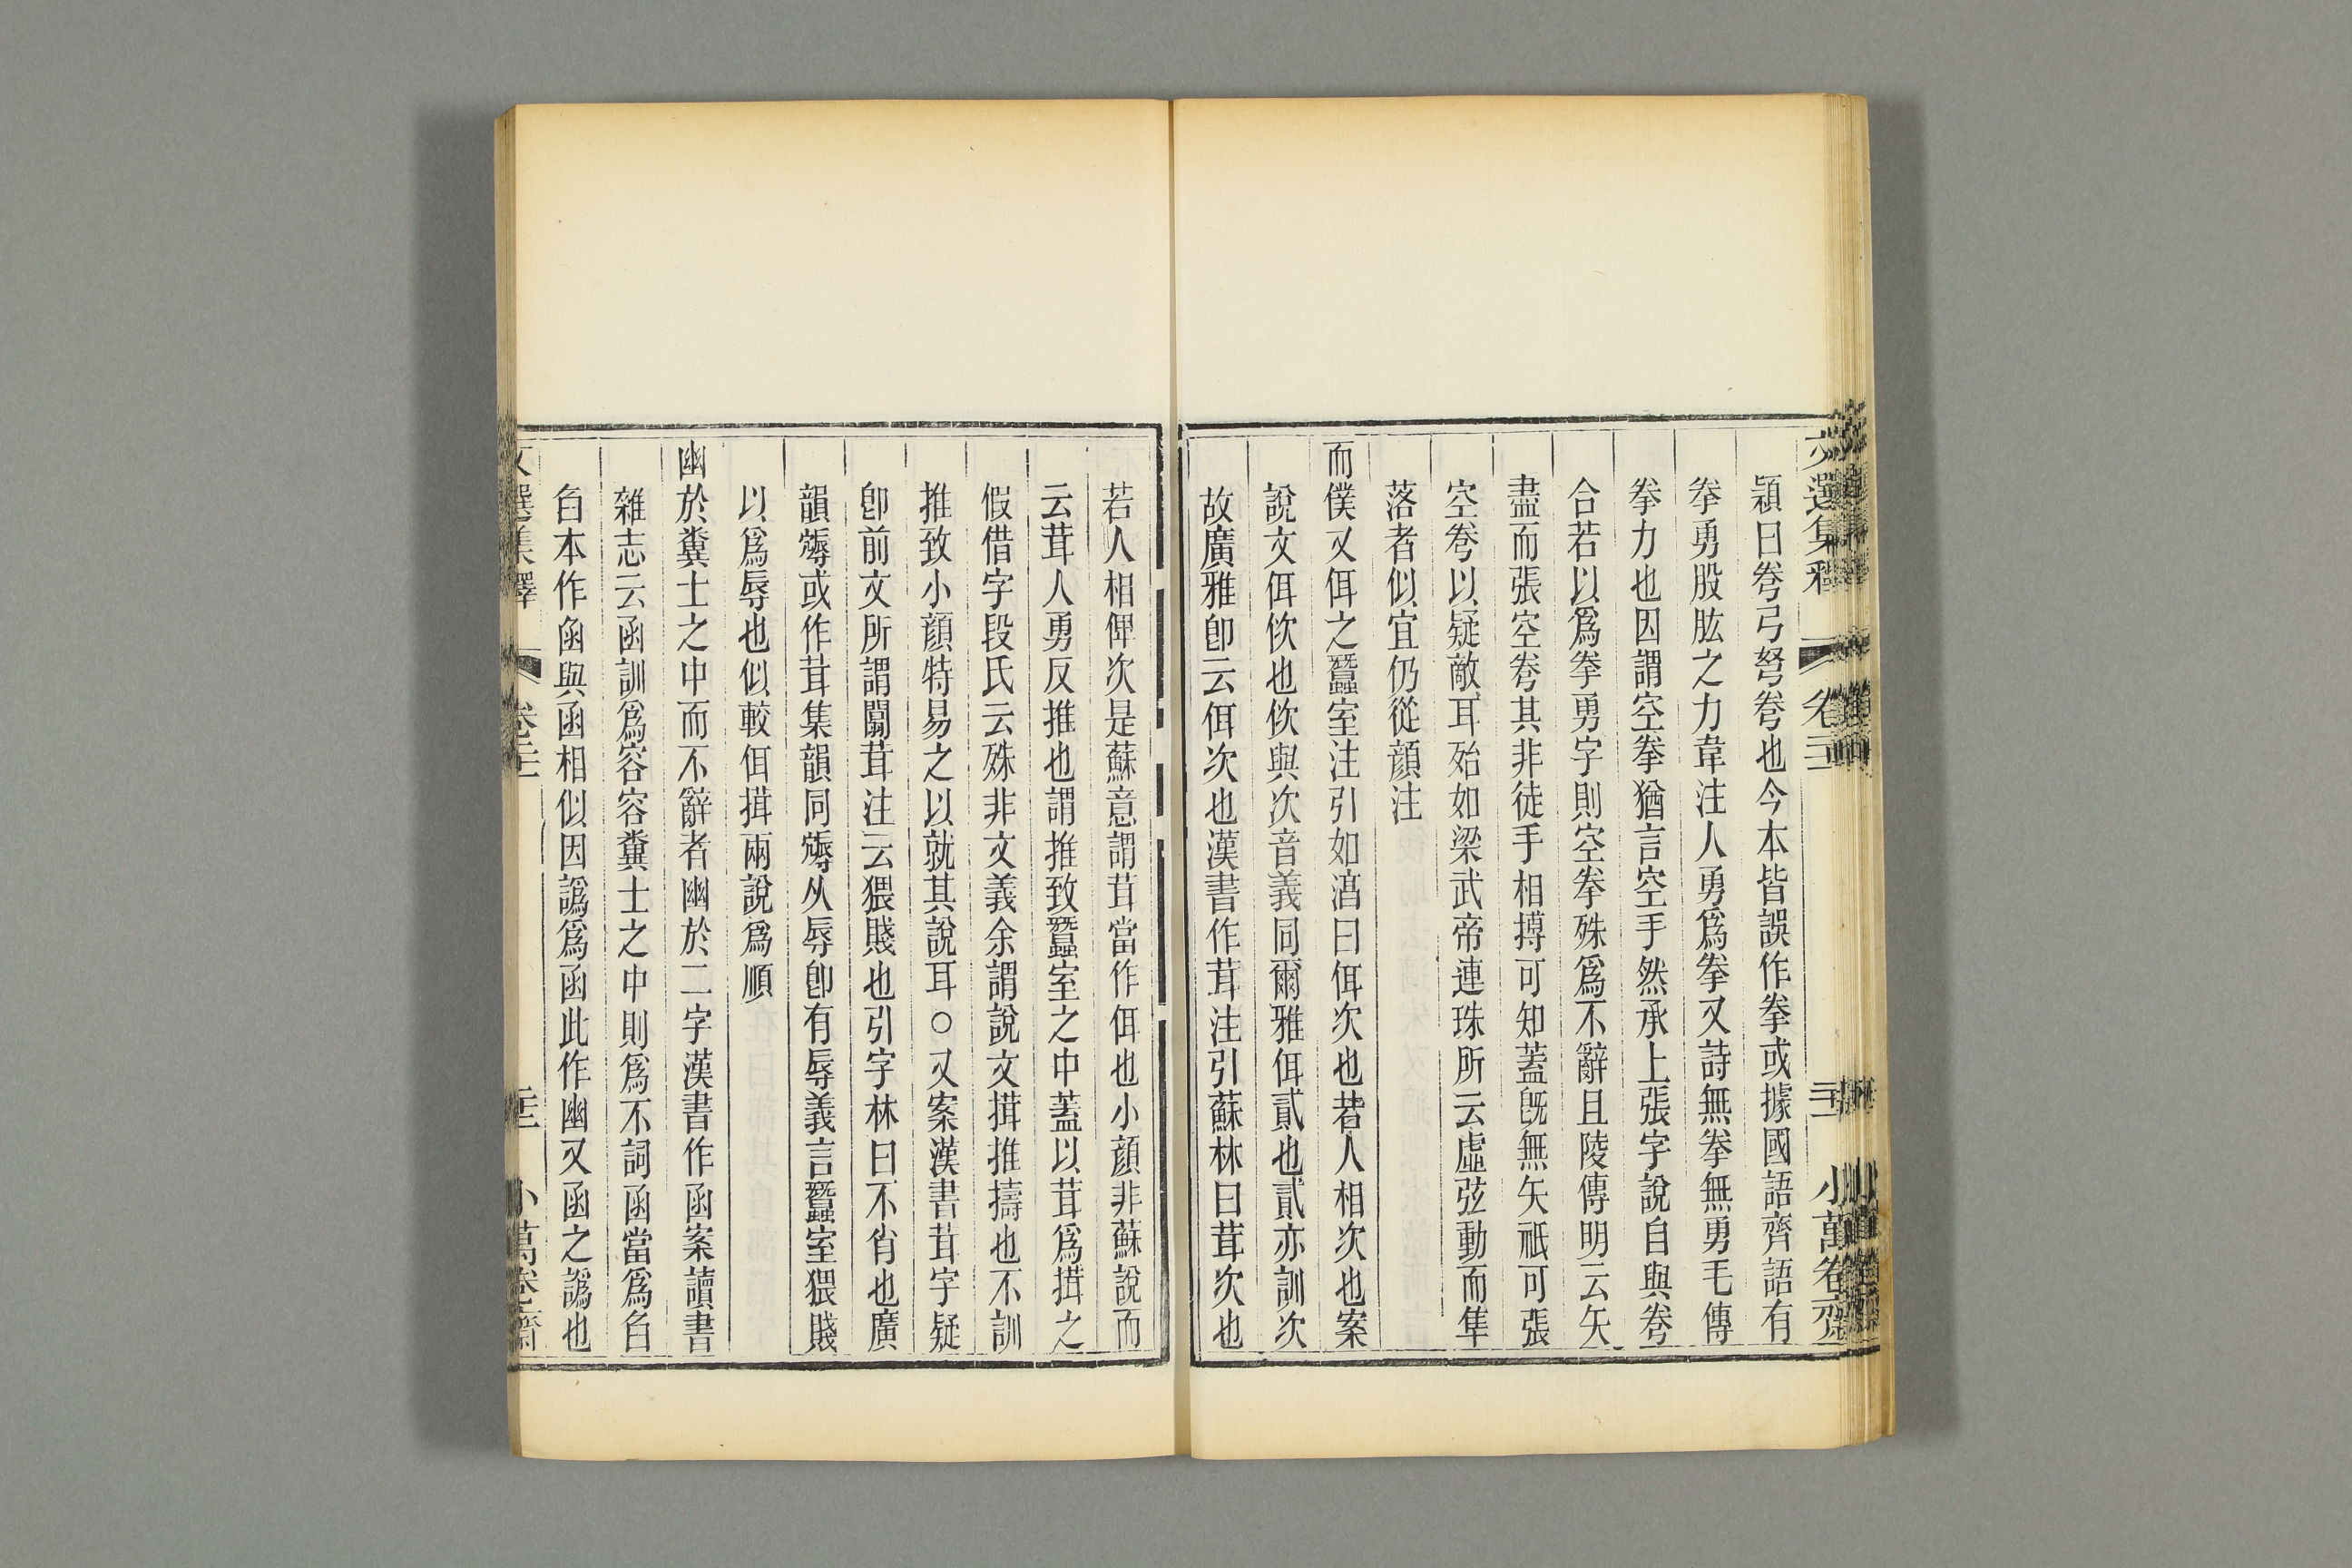 穎曰弮弓弩弮也今本皆誤作拳或據國語齊語有
拳勇股肱之力韋注人勇爲拳又詩無拳無勇毛傳
拳力也因謂空拳猶言空手然承上張字說自與弮
合若以爲拳勇字則空拳殊爲不辭且陵傳明云矢
盡而張空弮其非徒手相搏可知蓋旣無矢祇可張
空弮以疑敵耳殆如梁武帝連珠所云虛弦動而隼
落者似宜仍從顔注
而僕又佴之蠶室注引如湻曰佴次也若人相次也案
說文佴佽也佽與次音義同爾雅佴貳也貳亦訓次
故廣雅卽云佴次也漢書作茸注引蘇林曰茸次也
若人相俾次是蘇意謂茸當作佴也小顔非蘇說而
云茸人勇反推也謂推致蠶室之中蓋以茸爲搑之
假借字段氏云殊非文義余謂說文搑推擣也不訓
推致小顔特易之以就其說耳○又案漢書茸字疑
卽前文所謂闒茸注云猥賤也引字林曰不肖也廣
韻㺟或作茸集韻同㺟从辱卽有辱義言蠶室猥賤
以爲辱也似較佴搑兩說爲順
幽於糞土之中而不辭者幽於二字漢書作函案讀書
雜志云函訓爲容容糞土之中則爲不詞函當爲臽
臽本作𠤻與函相似因譌爲函此作幽又函之譌也
文選集釋 卷二十二 二十二 小萬卷齋